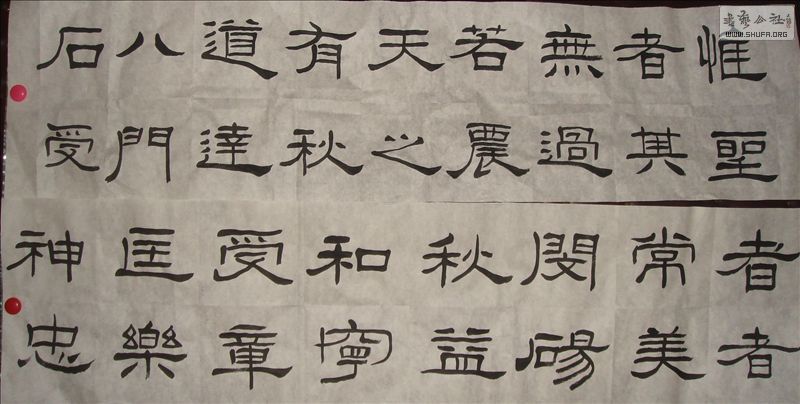 惟聖
者其
無過
若農
天之
有秋
道達
八門
石受
者者
常美
閔碭
秋益
和寧
受章
匡樂
神忠
书艺公社
WWW.SHUFA.ORG